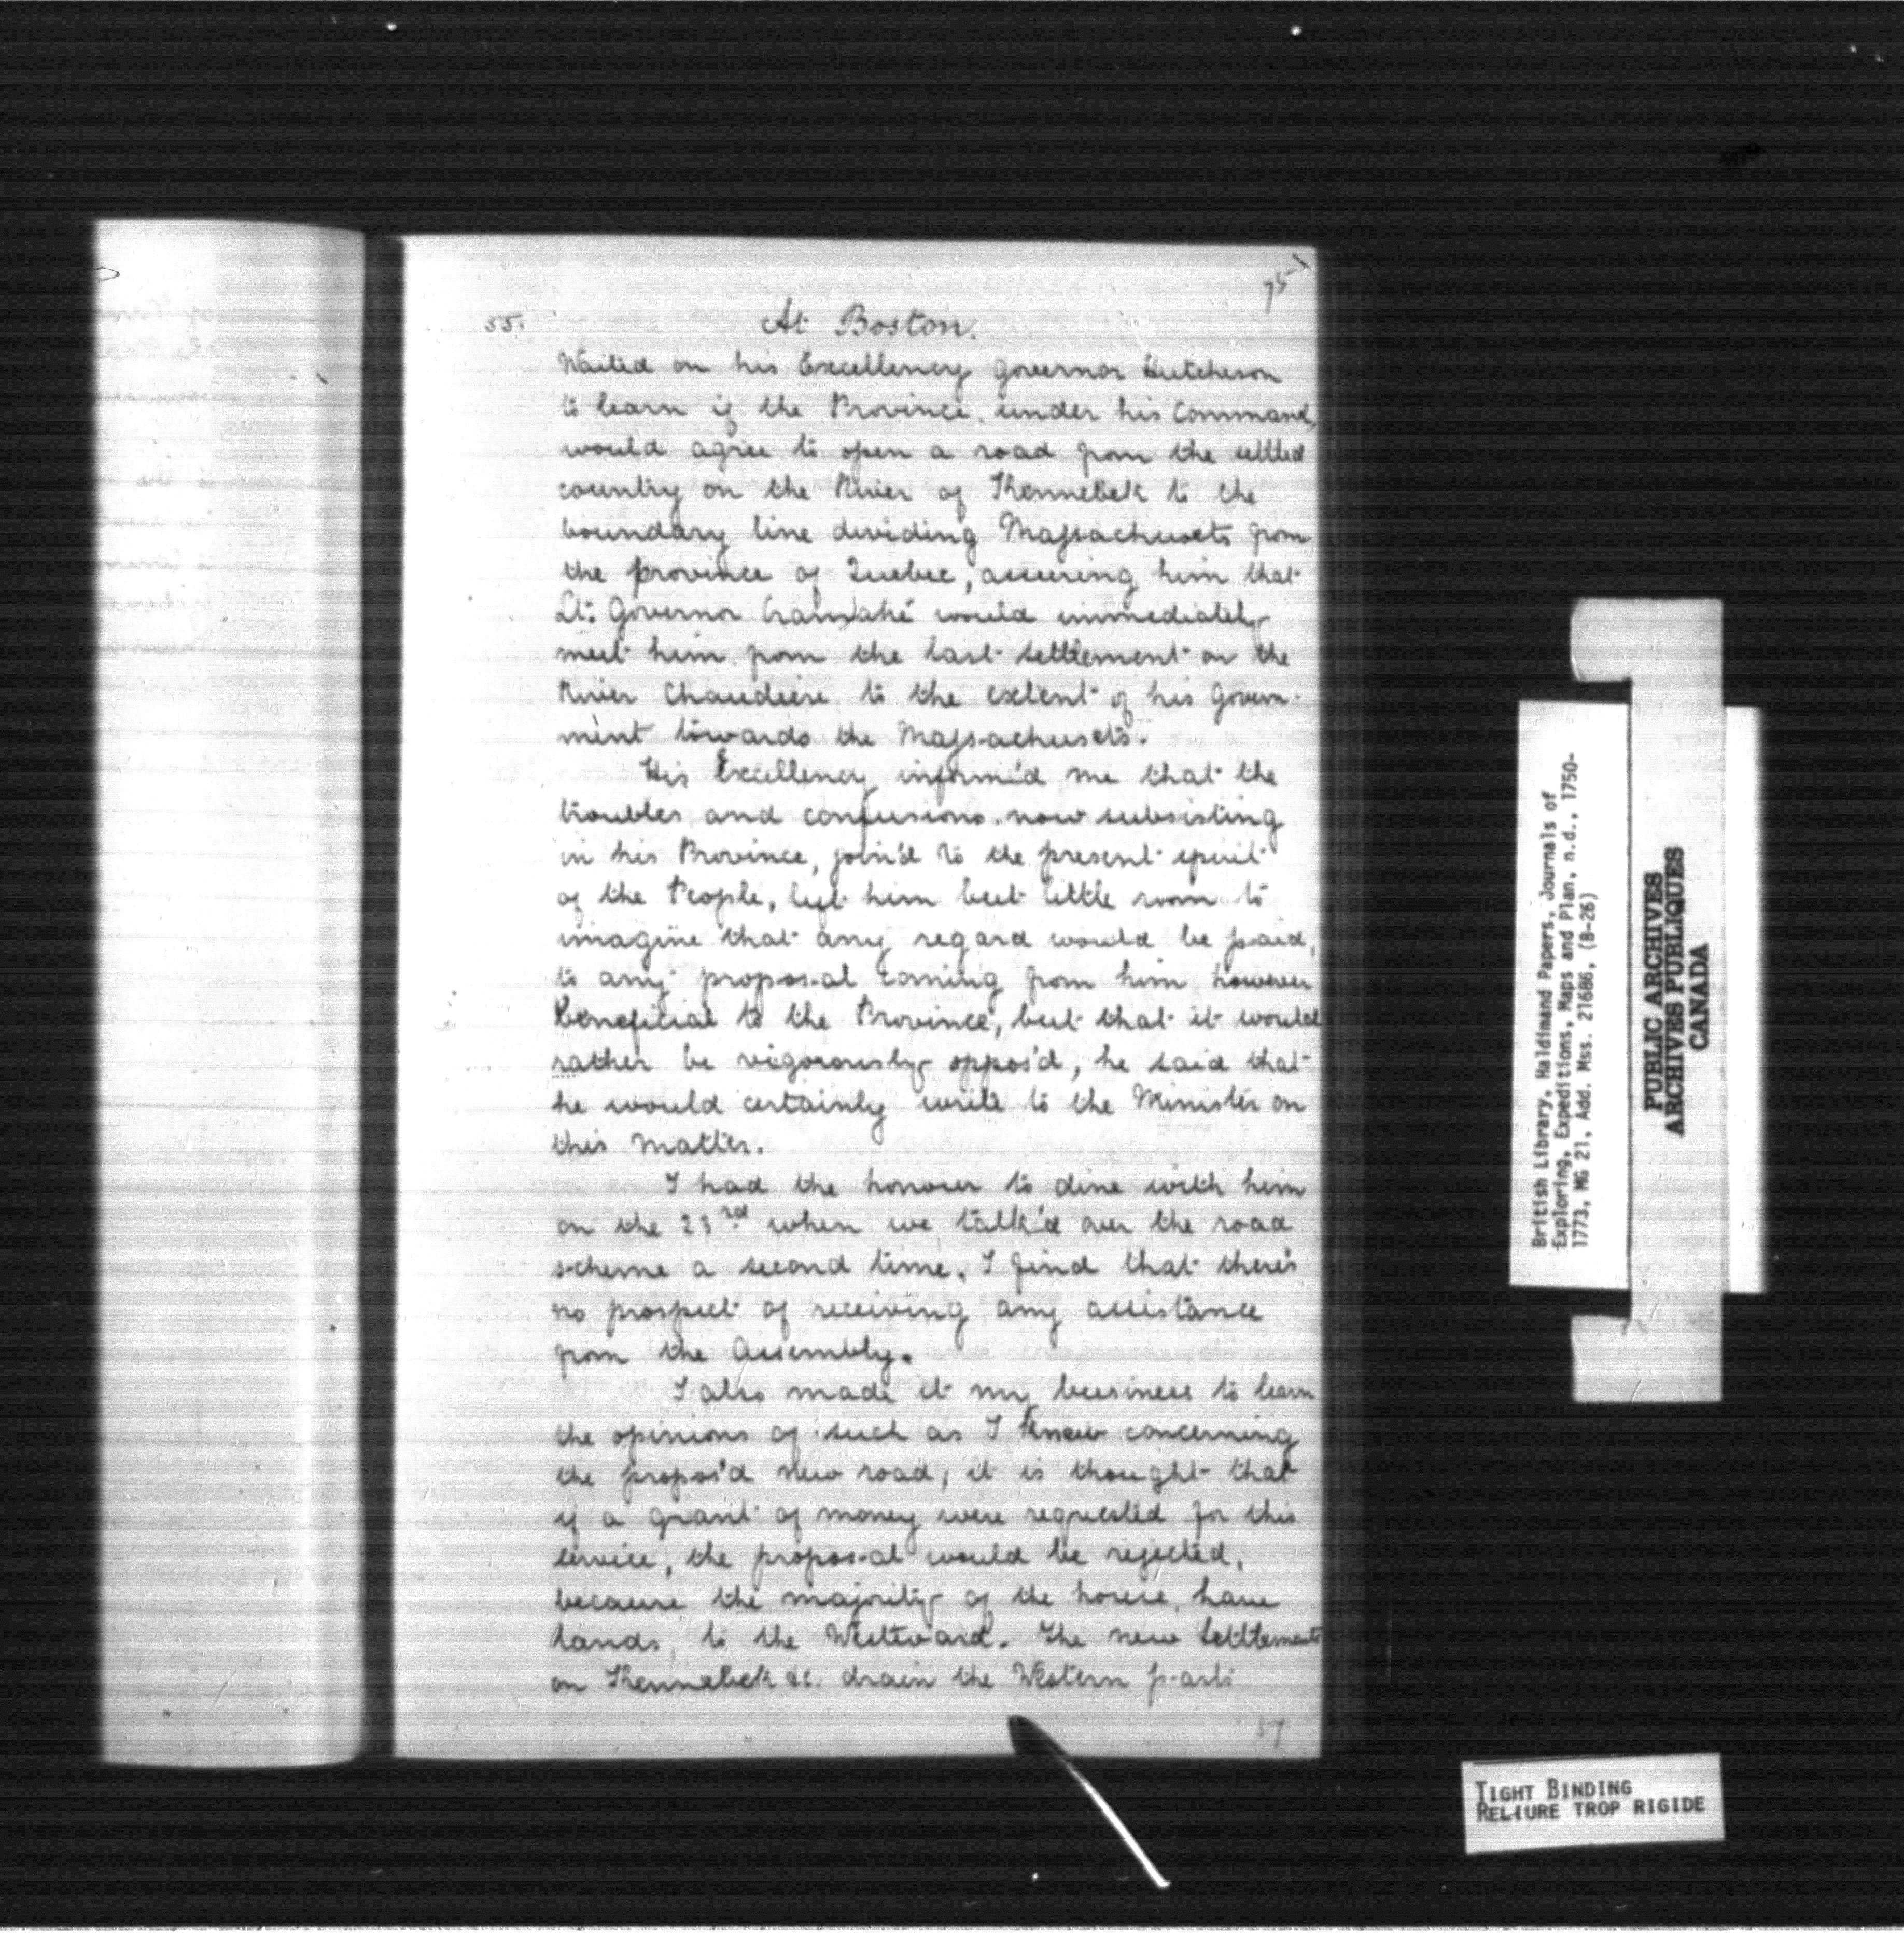 75-1
55. At Boston.
Waited on his Excellency Governor Hutcheson
to learn if the Province under his Command,
would agree to open a road from the settled
country on the River of Kennebek to the
boundary line dividing Massachusets from
the province of Quebec, assuring him that
Lt. Governor Cramahé would immediately
meet him from the last settlement on the
River Chaudiere to the extent of his Govern-
ment towards the Massachusets.
His Excellency inform'd me that the
troubles and confusions now subsisting
in his Province, join'd to the present spirit
of the People, left him but little room to
imagine that any regard would be paid,
to any proposal coming from him however
beneficial to the Province, but that it would
rather be vigorously oppos'd, he said that
he would certainly write to the Minister on
this matter.
I had the honour to dine with him
on the 23rd when we talk'd over the road
scheme a second time. I find that there's
no prospect of receiving any assistance
from the Assembly.
I also made it my business to learn
the opinions of such as I knew concerning
the propos'd new road, it is thought that
if a grant of money were requested for this
service, the proposal would be rejected,
because the majority of the house, have
lands to the Westward. The new Settlements
on Kennebek &c. drain the Western parts
57
British Library, Haldimand Papers, Journals of
Exploring, Expeditions, Maps and Plan, n.d., 1750-
1773, MG 21, Add. Mss. 21686, (B-26)
PUBLIC ARCHIVES
ARCHIVES PUBLIQUES
CANADA
TIGHT BINDING
RELIURE TROP RIGIDE